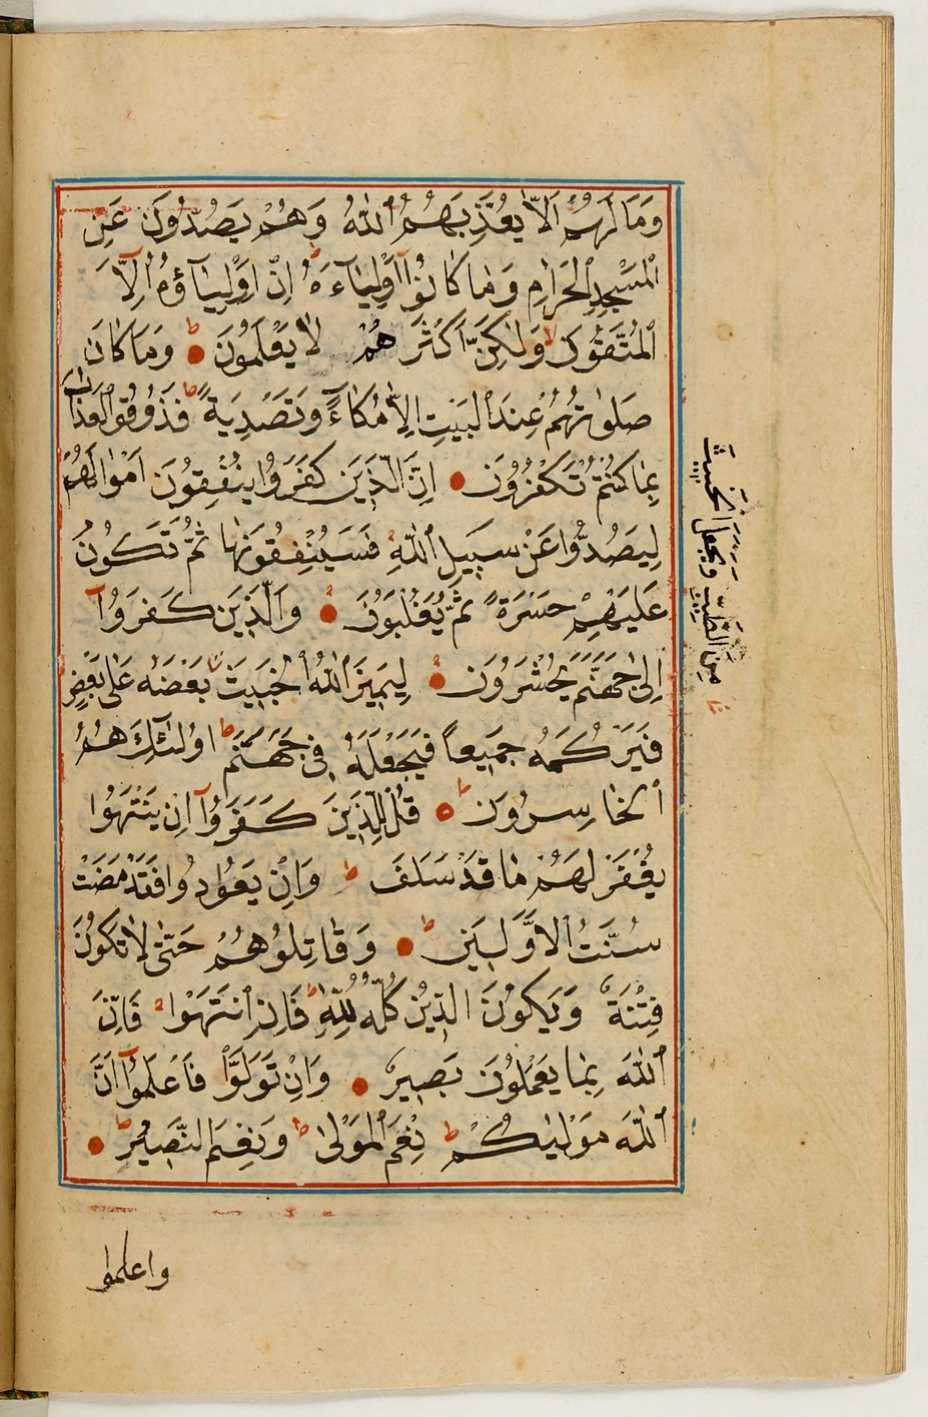 وَمَا لَهُمْ اَلَّا يُعَذِّبَهُمُ اللّٰهُ وَهُمْ يَصُدُّونَ عَنِ
الْمَسْجِدِ الْحَرَامِ وَمَا كَانُوٓا اَوْلِيَآءَهُ اِنْ اَوْلِيَآؤُهُ اِلَّا
الْمُتَّقُونَ وَلٰكِنَّ اَكْثَرَهُمْ لَا يَعْلَمُونَ وَمَا كَانَ
صَلٰوتُهُمْ عِنْدَ الْبَيْتِ اِلَّا مُكَآءً وَتَصْدِيَةً فَذُوقُوا الْعَذَابَ
بِمَا كُنْتُمْ تَكْفُرُونَ اِنَّ الَّذِينَ كَفَرُوا يُنْفِقُونَ اَمْوَالَهُمْ
لِيَصُدُّوا عَنْ سَبِيلِ اللّٰهِ فَسَيُنْفِقُونَهَا ثُمَّ تَكُونُ
عَلَيْهِمْ حَسْرَةً ثُمَّ يُغْلَبُونَ وَالَّذِينَ كَفَرُوٓا
اِلٰى جَهَنَّمَ يُحْشَرُونَ لِيَمِيزَ اللّٰهُ الْخَبِيثَ بَعْضَهُ عَلٰى بَعْضٍ
فَيَرْكُمَهُ جَمِيعاً فَيَجْعَلَهُ فِى جَهَنَّمَ اُولٰٓئِكَ هُمُ
الْخَاسِرُونَ قُلْ لِلَّذِينَ كَفَرُوٓا اِنْ يَنْتَهُوا
يُغْفَرْ لَهُمْ مَا قَدْ سَلَفَ وَاِنْ يَعُودُوا فَقَدْ مَضَتْ
سُنَّتُ الْاَوَّلِينَ وَقَاتِلُوهُمْ حَتّٰى لَا تَكُونَ
فِتْنَةٌ وَيَكُونَ الدِّينُ كُلُّهُ لِلّٰهِ فَاِنِ انْتَهَوْا فَاِنَّ
اللّٰهَ بِمَا يَعْمَلُونَ بَصِيرٌ وَاِنْ تَوَلَّوْا فَاعْلَمُوٓا اَنَّ
اللّٰهَ مَوْلٰيكُمْ نِعْمَ الْمَوْلٰى وَنِعْمَ النَّصِيرُ
مِنَ الطَّيِّبِ وَيَجْعَلَ الْخَبِيثَ
واعلموا